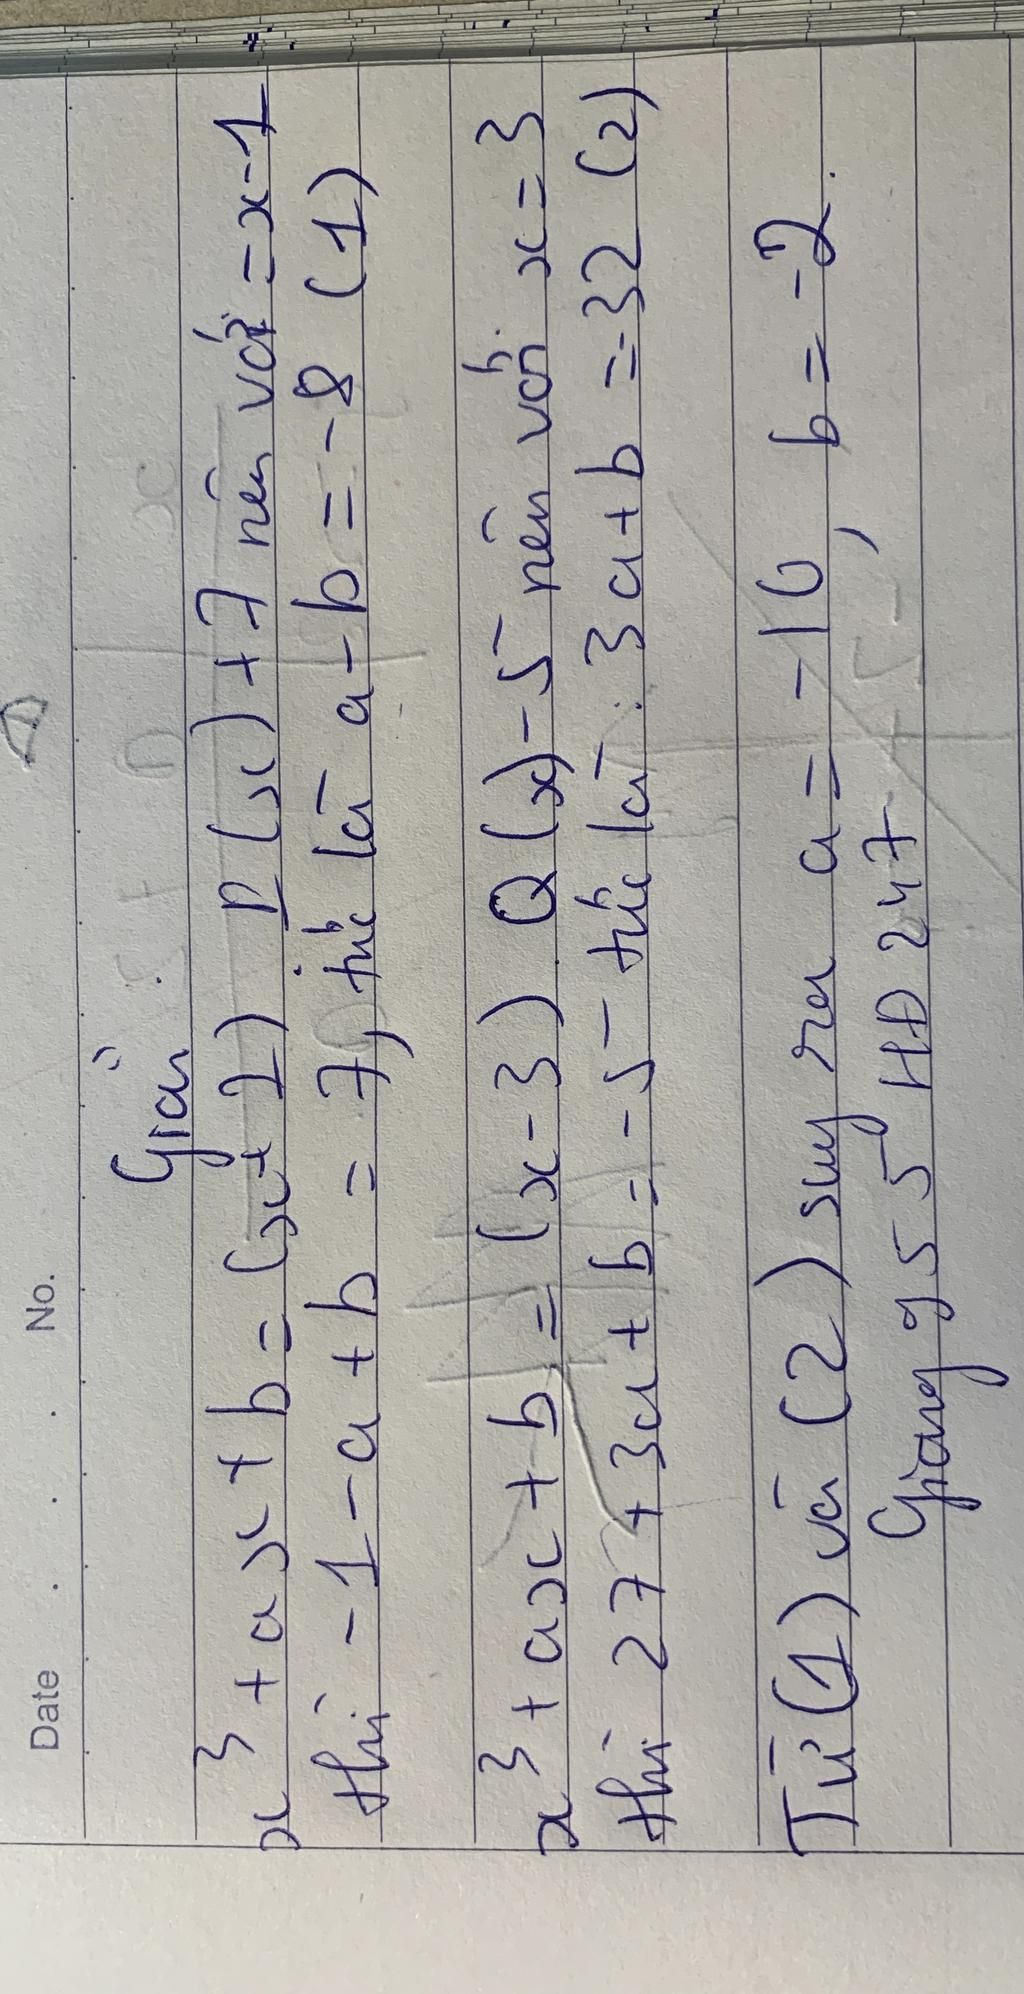 Date No.
Giải
x³ + ax + b = (x+1) P(x) +7 nên với = x-1
thì -1 - a + b = 7, tức là a - b = -8 (1)
x³ + ax + b = (x-3) Q(x) - 5 nên với x = 3
thì 27 + 3a + b = -5 tức là: 3a + b = -32 (2)
Từ (1) và (2) suy ra a = -10, b = -2.
Giang g55 HD 247